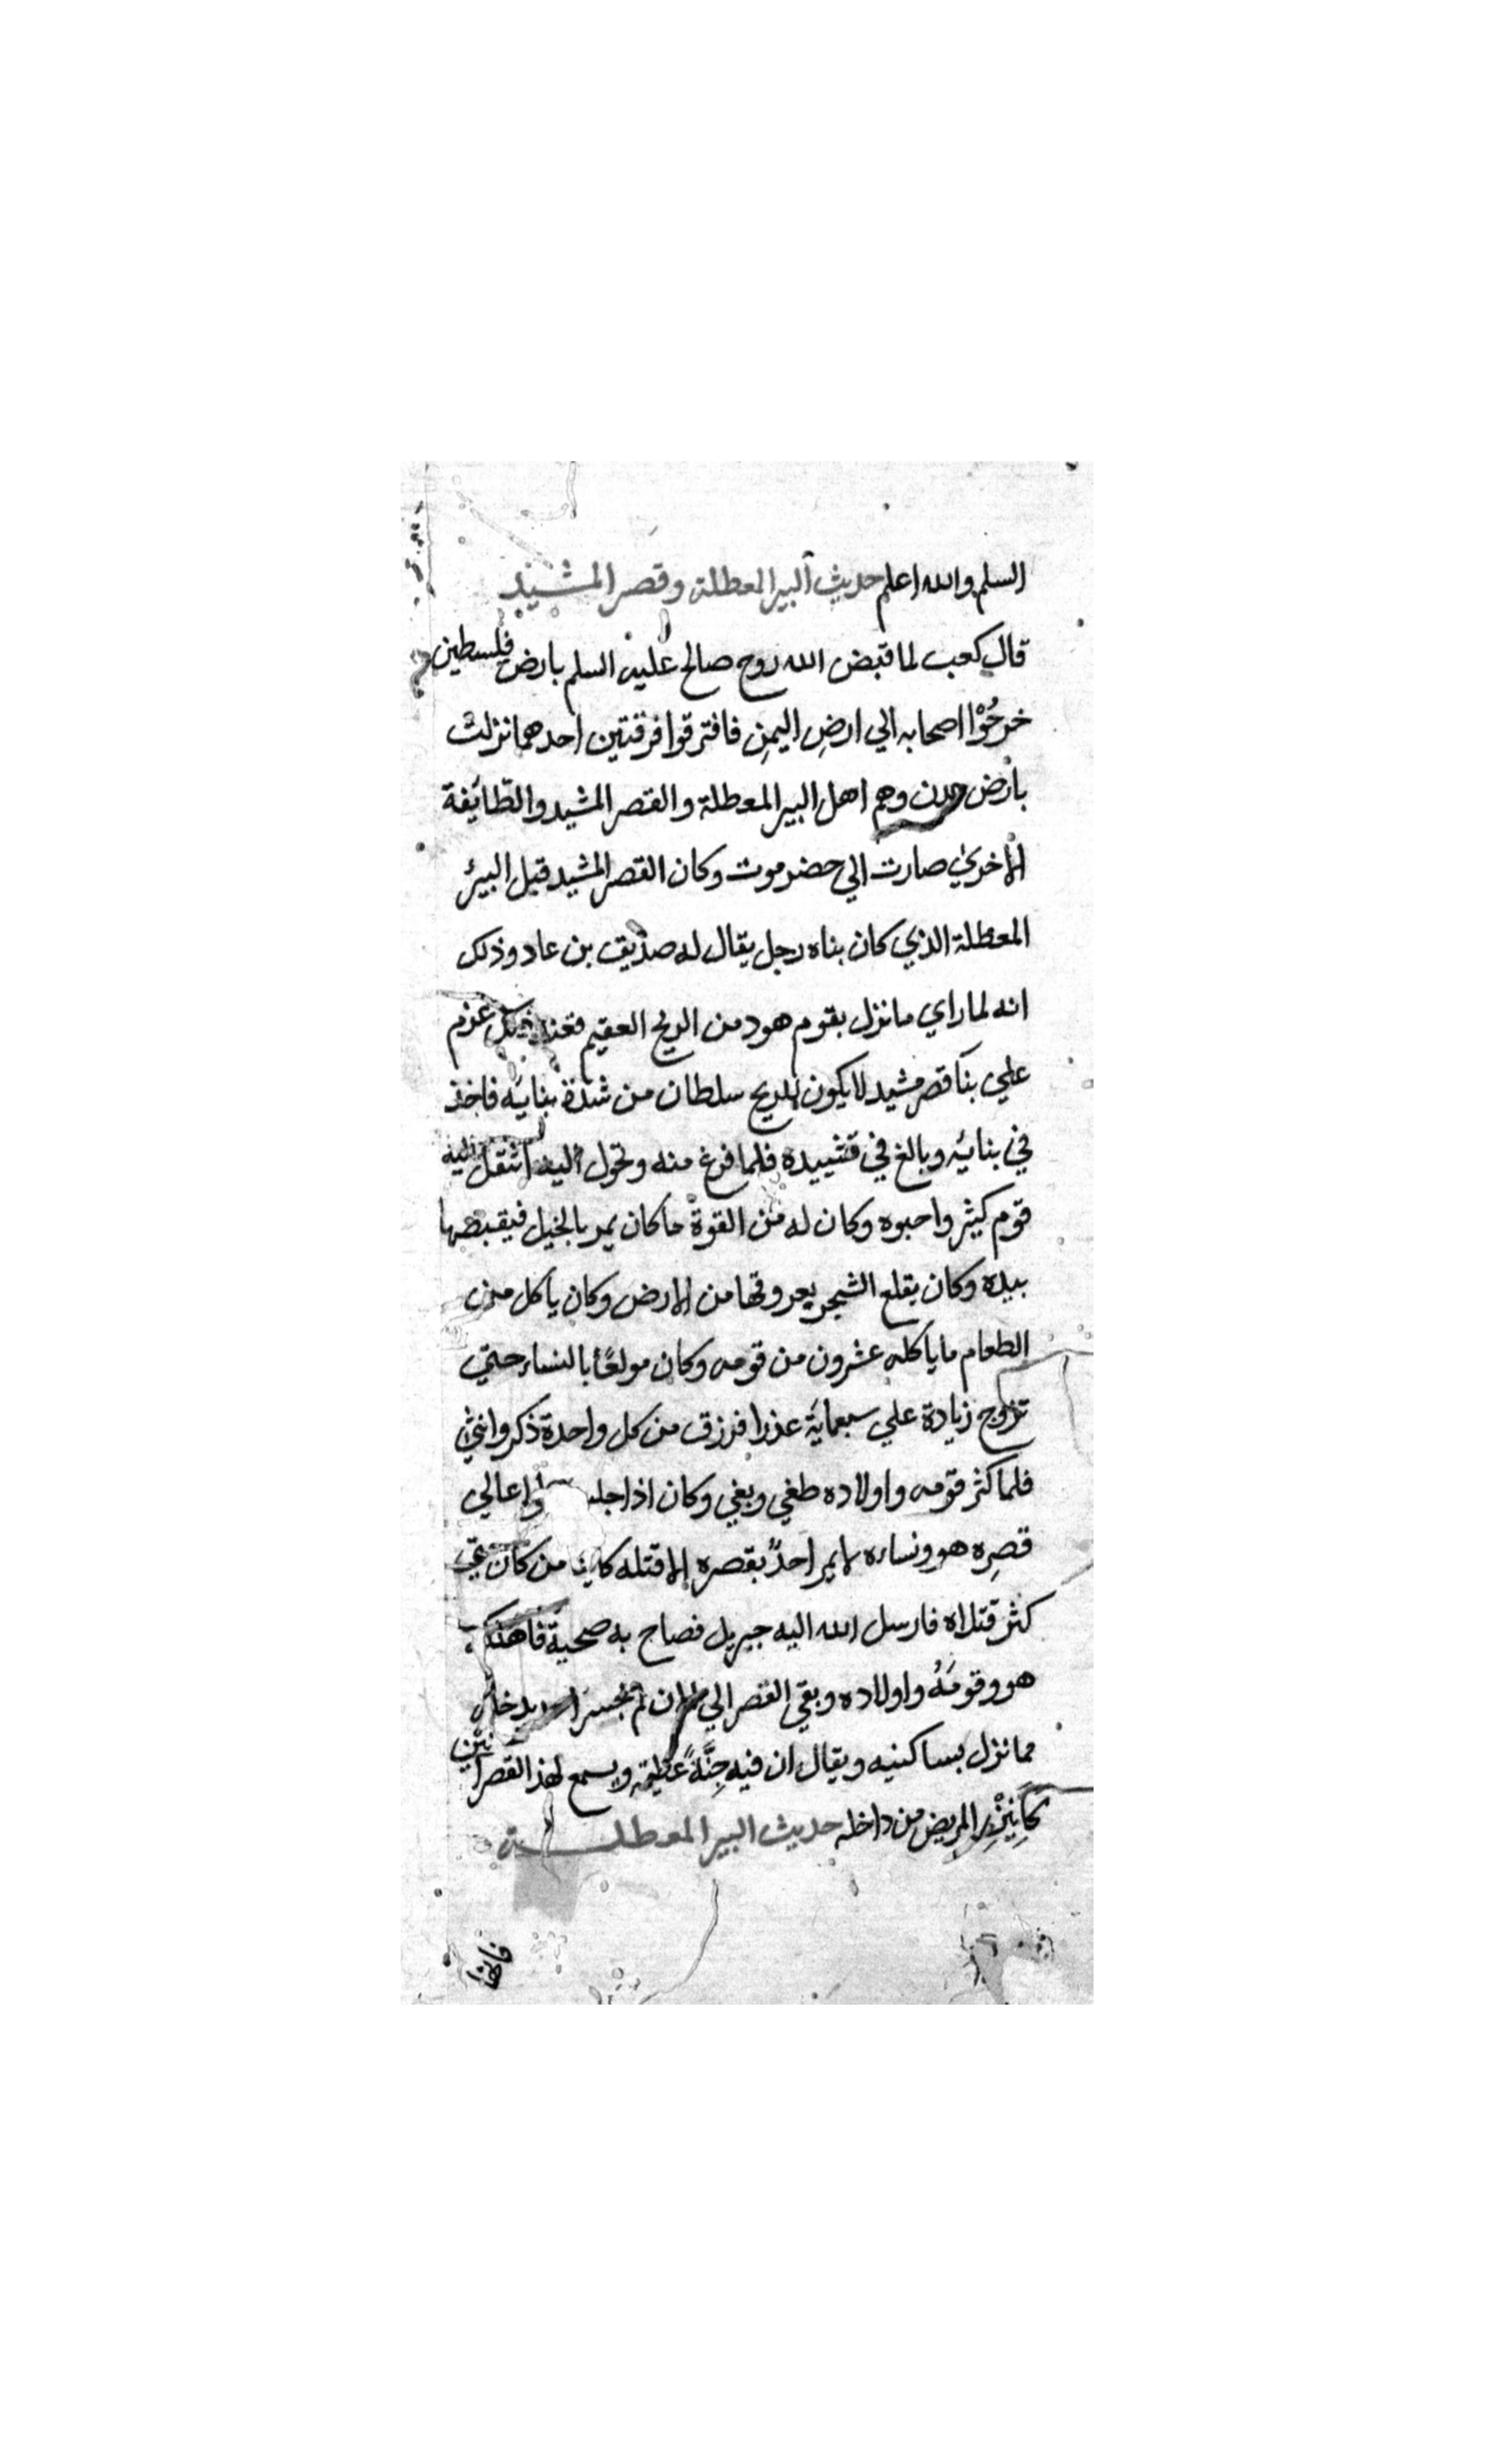 السلم والله اعلم حديث البير المعطلة وقصر المشيد
قال كعب لما قبض الله روح صالح عليه السلم بارض فلسطين
خرجُوْا اصحابه الي ارضِ اليمنِ فافترقوا فرقتين احدهما نزلت
بارض عدن وهم اهل البير المعطلة والقصر المشيد والطايفة
الاخري صارت الي حضرموت وكان القصر المشيد قبل البير
المعطلة الذي كان بناه رجل يقال له صديق بن عاد وذلك
انه لما راي ما نزل بقوم هود من الريح العقيم فعند ذلك عزم
علي بنا قصر مشيد لا يكون للريح سلطان من شدة بنايه فاخذ
في بنايه وبالغ في تشييده فلما فرغ منه وتحول اليه انتقل اليه
قوم كثير واحبوه وكان له من القوة ما كان يمر بالخيل فيقبضها
بيده وكان يقلع الشجر بعروقها من الارض وكان ياكل من
الطعام ما ياكله عشرون من قومه وكان مولعًا بالنساء حتي
تزوج زيادة علي سبعماية عذرا فرزق من كل واحدة ذكر وانثي
فلما كثر قومه واولاده طغي وبغي وكان اذا جلس اعالي
قصرِه هو ونساءه لا يمر احدًا بقصره الا قتله كاينا من كان حتي
كثر قتلاه فارسل الله اليه جبريل فصاح به صحية فاهلك
هو وقومَهُ واولاده وبقي القصر الي الان لم يجسر احد يدخله
مما نزل بساكنيه ويقال ان فيه جِنَّةً عظيمة ويسمع لهذا القصر انين
كانِيْنِ المريض من داخله حديث البير المعطلة